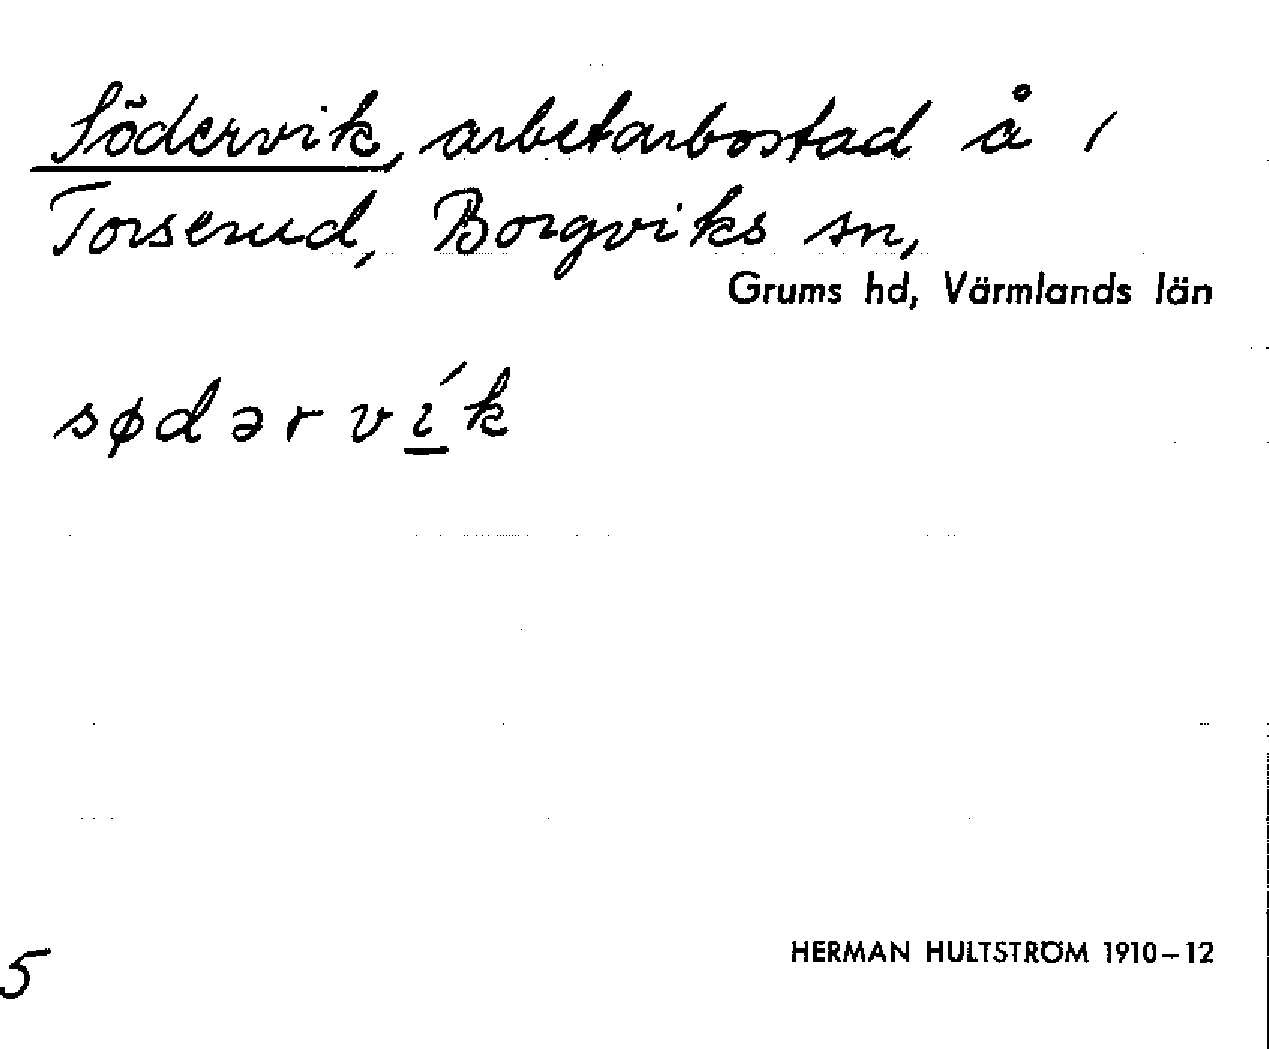 Södervik, arbetarbostad å /
Torserud, Borgviks sn,
Grums hd, Värmlands län
sødərví̲k
5
HERMAN HULTSTRÖM 1910–12